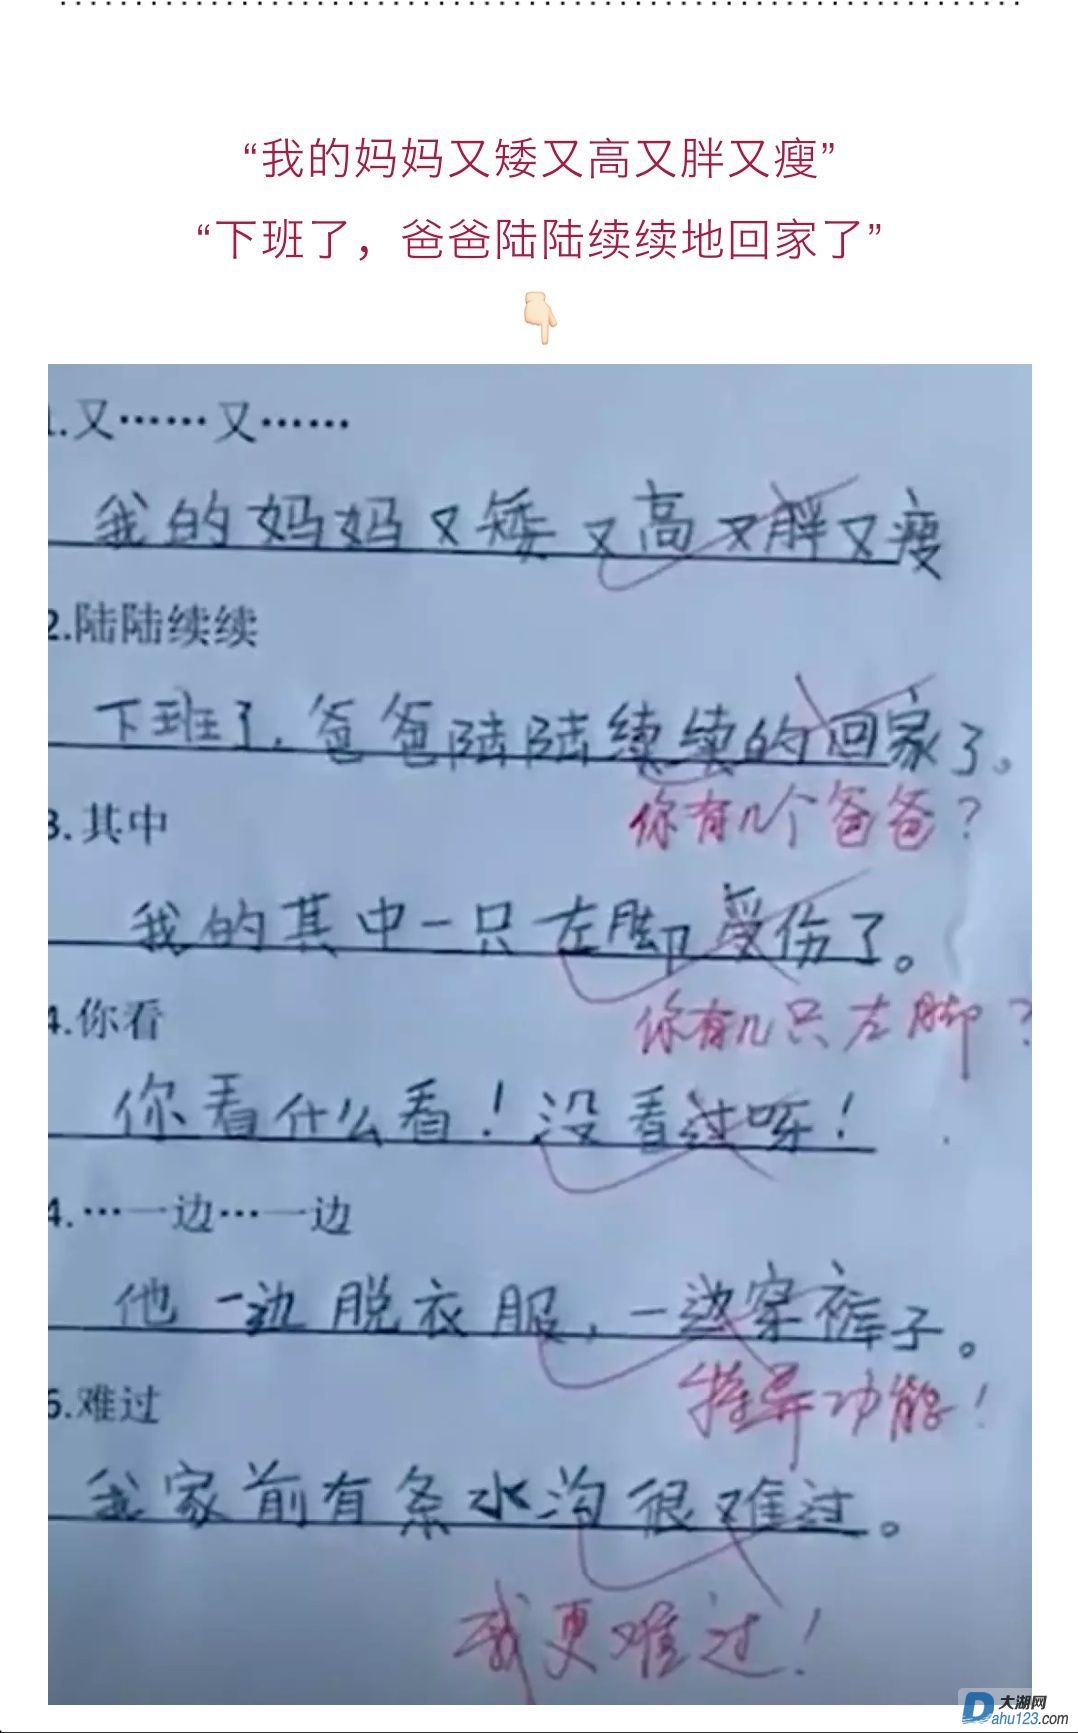 “我的妈妈又矮又高又胖又瘦”
“下班了，爸爸陆陆续续地回家了”
1.又……又……
我的妈妈又矮又高又胖又瘦
2.陆陆续续
下班了.爸爸陆陆续续的回家了。
你有几个爸爸?
3.其中
我的其中一只左脚受伤了。
你有几只左脚?
4.你看
你看什么看!没看过呀!
4.…一边…一边
他一边脱衣服,一边穿裤子。
特异功能!
5.难过
我家前有条水沟很难过。
我更难过!
大湖网
Dahu123.com